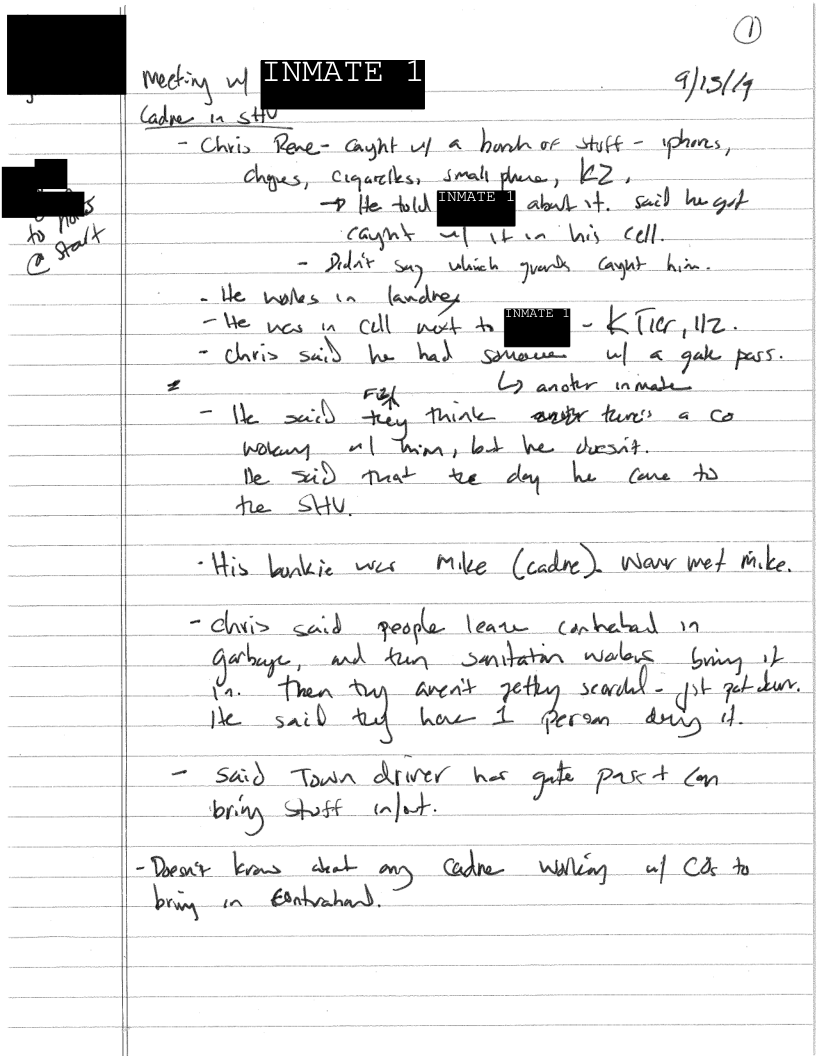 1
Meeting w/ INMATE 1 9/13/19
Cadre in SHU
- Chris Rene - caught w/ a bunch of stuff - iphones,
chgres, cigarettes, small phone, K2.
→ He told INMATE 1 about it. said he got
caught w/ it in his cell.
- Didn't say which guards caught him.
to
@ start
- He works in laundry
- He was in cell next to INMATE 1 - K Tier, 112.
- Chris said he had someone w/ a gate pass.
↳ another inmate
- He said they think there's a CO
working w/ him, but he doesn't.
He said that the day he came to
the SHU.
- His bunkie was Mike (cadre). Never met Mike.
- Chris said people leave contraband in
garbage, and then sanitation workers bring it
in. Then they aren't getting searched - jst pat down.
He said they have 1 person doing it.
- Said Town driver has gate pass + can
bring stuff in/out.
- Doesn't know about any Cadre working w/ COs to
bring in contraband.